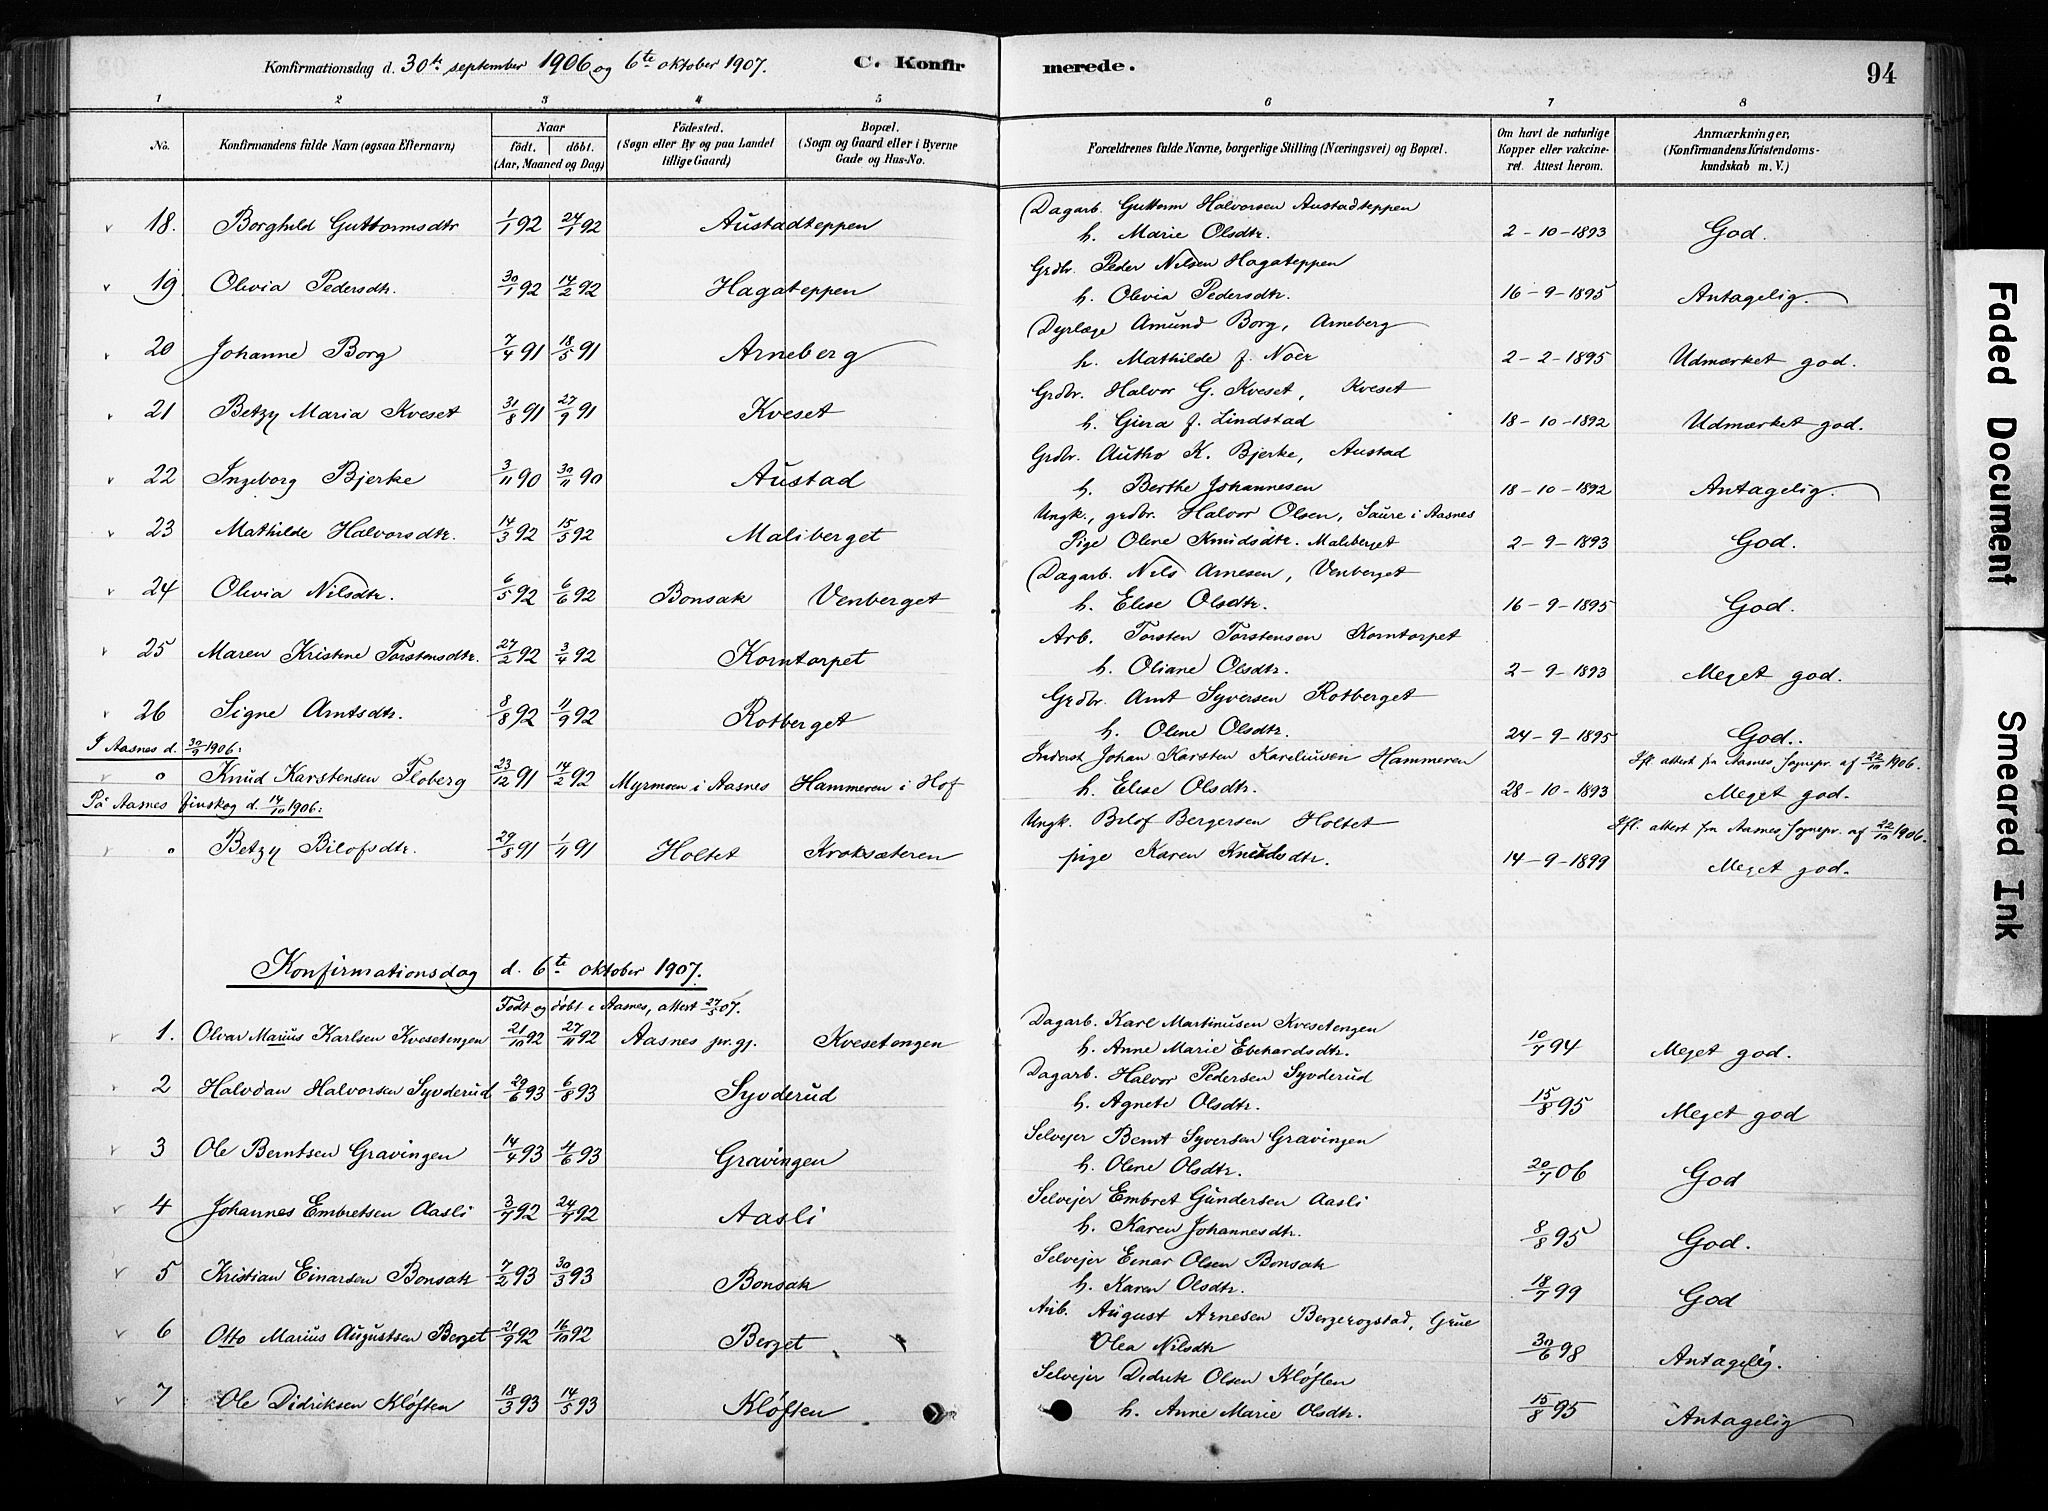 Konfirmationsdag d. 30te september 1906 og 6te oktober 1907. C. Konfirmerede. 94
1 2 3 4 5 6 7 8
No. Konfirmandens fulde Navn (ogsaa Efternavn) Naar født. døbt. (Aar, Maaned og Dag) Fødested. (Sogn eller By og paa Landet tillige Gaard) Bopæl. (Sogn og Gaard eller i Byerne Gade og Hus-No. Forældrenes fulde Navne, borgerlige Stilling (Næringsvei) og Bopæl. Om havt de naturlige Kopper eller vakcineret. Attest herom. Anmærkninger, (Konfirmandens Kristendomskundskab m. V.)
Dagarb. Guttorm Halvorsen Austadteppen
18. Borghild Guttormsdtr 1/1 92 24/1 92 Austadteppen h. Marie Olsdtr. 2-10-1893 God.
Grdbr. Peder Nilsen Hagateppen
19. Olivia Pedersdtr. 30/1 92 14/2 92 Hagateppen h. Olivia Pedersdtr. 16-9-1895 Antagelig.
Dyrlæge Amund Borg, Arneberg
20 Johanne Borg 7/4 91 18/5 91 Arneberg h. Mathilde f. Noer 2-2-1895 Udmærket god.
Grdbr. Halvor G. Kveset, Kveset
21 Betzy Maria Kveset 31/8 91 27/9 91 Kveset h. Gina f. Lindstad 18-10-1892 Udmærket god.
Grdbr. Autho K. Bjerke, Austad
22 Ingeborg Bjerke 3/11 90 30/11 90 Austad h. Berthe Johannesen 18-10-1892 Antagelig.
Ungk., grdbr. Halvor Olsen, Saure i Aasnes
23 Mathilde Halvorsdtr. 14/3 92 15/5 92 Maliberget Pige Oline Knudsdtr. Maliberget 2-9-1893 God.
Dagarb. Nils Arnesen, Venberget
24 Olivia Nilsdtr. 6/5 92 6/6 92 Bonsak Venberget h. Elise Olsdtr. 16-9-1895 God.
Arb. Torsten Torstensen Korntorpet
25 Maren Kristine Torstensdtr. 27/2 92 3/4 92 Korntorpet h. Oliane Olsdtr. 2-9-1893 Meget god.
Grdbr. Arnt Syversen Rotberget
26 Signe Arntsdtr. 8/8 92 11/9 92 Rotberget h. Oline Olsdtr. 24-9-1895 God.
I Aasnes d. 30/9 1906: Inderst Johan Karsten Hammeren Ifl. attest fra Aasnes sognepr. af 22/10 1906.
" Knud Karstensen Floberg 23/12 91 14/2 92 Myrmoen i Aasnes Hammeren i Hof h. Elise Olsdtr. 28-10-1893 Meget god.
På Aasnes finskog d. 14/10 1906: Ungk. Bilof Bergersen Holtet Ifl. attest fra Aasnes sognepr. af 22/10 1906.
" Betzy Bilofsdtr. 29/8 91 1/11 91 Holtet Kroksæteren pige Karen Knudsdtr. 14-9-1899 Meget god.
Konfirmationsdag d. 6te oktober 1907.
Født og døbt i Aasnes, attest 27/5 07.
Dagarb. Karl Martinusen Kvesetengen
1. Olvar Marius Karlsen Kvesetengen 21/10 92 27/11 92 Aasnes pr.gj. Kvesetengen h. Anne Marie Ebehardsdtr. 10/7 94 Meget god.
Dagarb. Halvor Pedersen Syvderud
2 Halvdan Halvorsen Syvderud 29/6 93 6/8 93 Syvderud h. Agnete Olsdtr. 15/8 95 Meget god
Selvejer Bernt Syversen Gravingen
3 Ole Berntsen Gravingen 14/4 93 4/6 93 Gravingen h. Oline Olsdtr. 20/7 06 God
Selvejer Embret Gundersen Aasli
4 Johannes Embretsen Aasli 3/7 92 24/7 92 Aasli h. Karen Johannesdtr. 8/8 95 God.
Selvejer Einar Olsen Bonsak
5 Kristian Einarsen Bonsak 7/2 93 30/3 93 Bonsak h. Karen Olsdtr. 18/7 99 God
Arb. August Arnesen Bergerogstad, Grue
6 Otto Marius Augustsen Berget 21/9 92 16/10 92 Berget Olea Nilsdtr 30/6 98 Antagelig.
Selvejer Didrik Olsen Kløften
7 Ole Didriksen Kløften 18/3 93 14/5 93 Kløften h. Anne Marie Olsdtr. 15/8 95 Antagelig
Faded Document
Smeared Ink